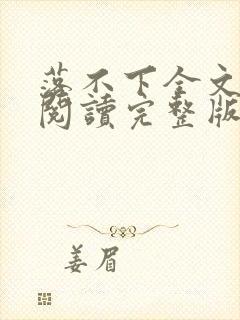 落不下全文
閱讀完整版
姜眉